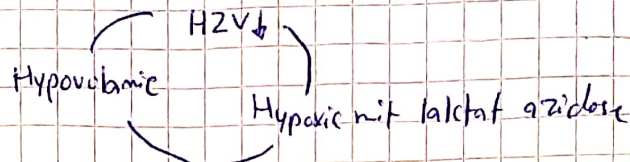 HZV↓
Hypovolämie
Hypoxie mit laktat azidose